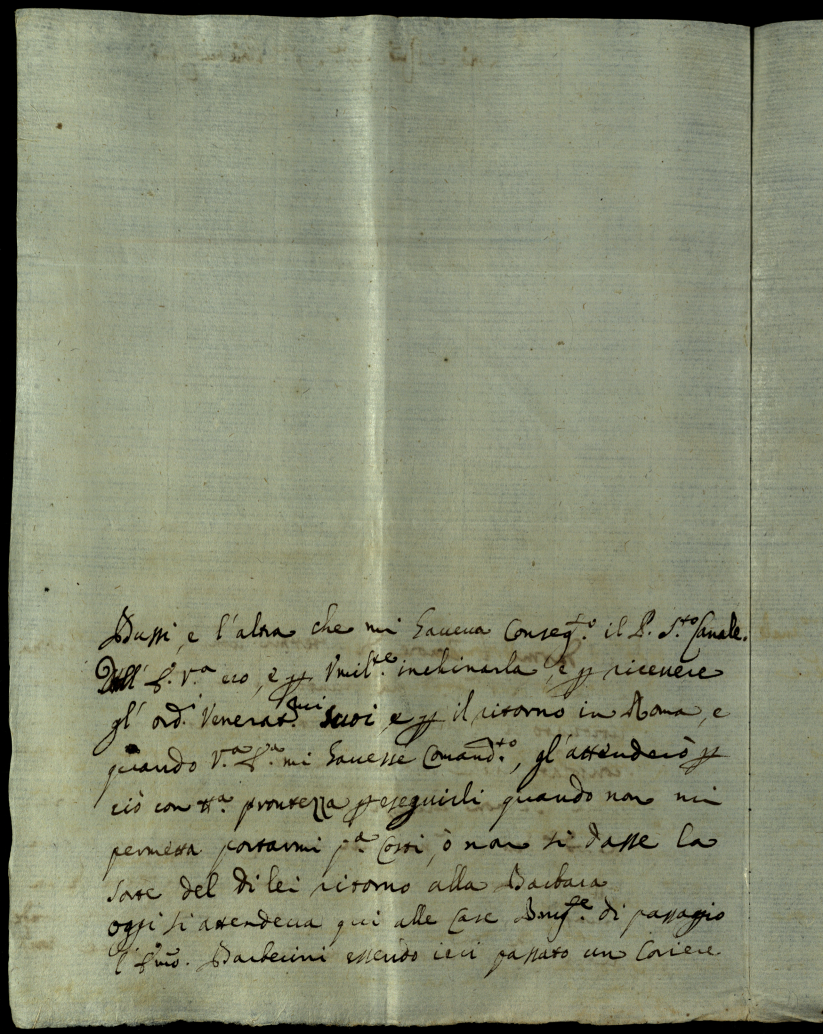 Bussi, e l'altra che mi haveva Conseg.to il P. S.to Canale.
Dall' E. V.a ero, e p Umil.te inchinarla, e p ricevere
gl' ord.i Venerat.mi suoi e p il ritorno in Roma, e
quando V.a E.a mi havesse Comand.to, gl'attenderò p
ciò con tt.a prontezza p eseguirli quando non mi
permetta portarmi p.a Costi, ò non si dasse la
del di lei ritorno alla Barbara
oggi si attendeva qui alle Case di passaggio
l'Emo. Barberini essendo ieri passato un Coriere